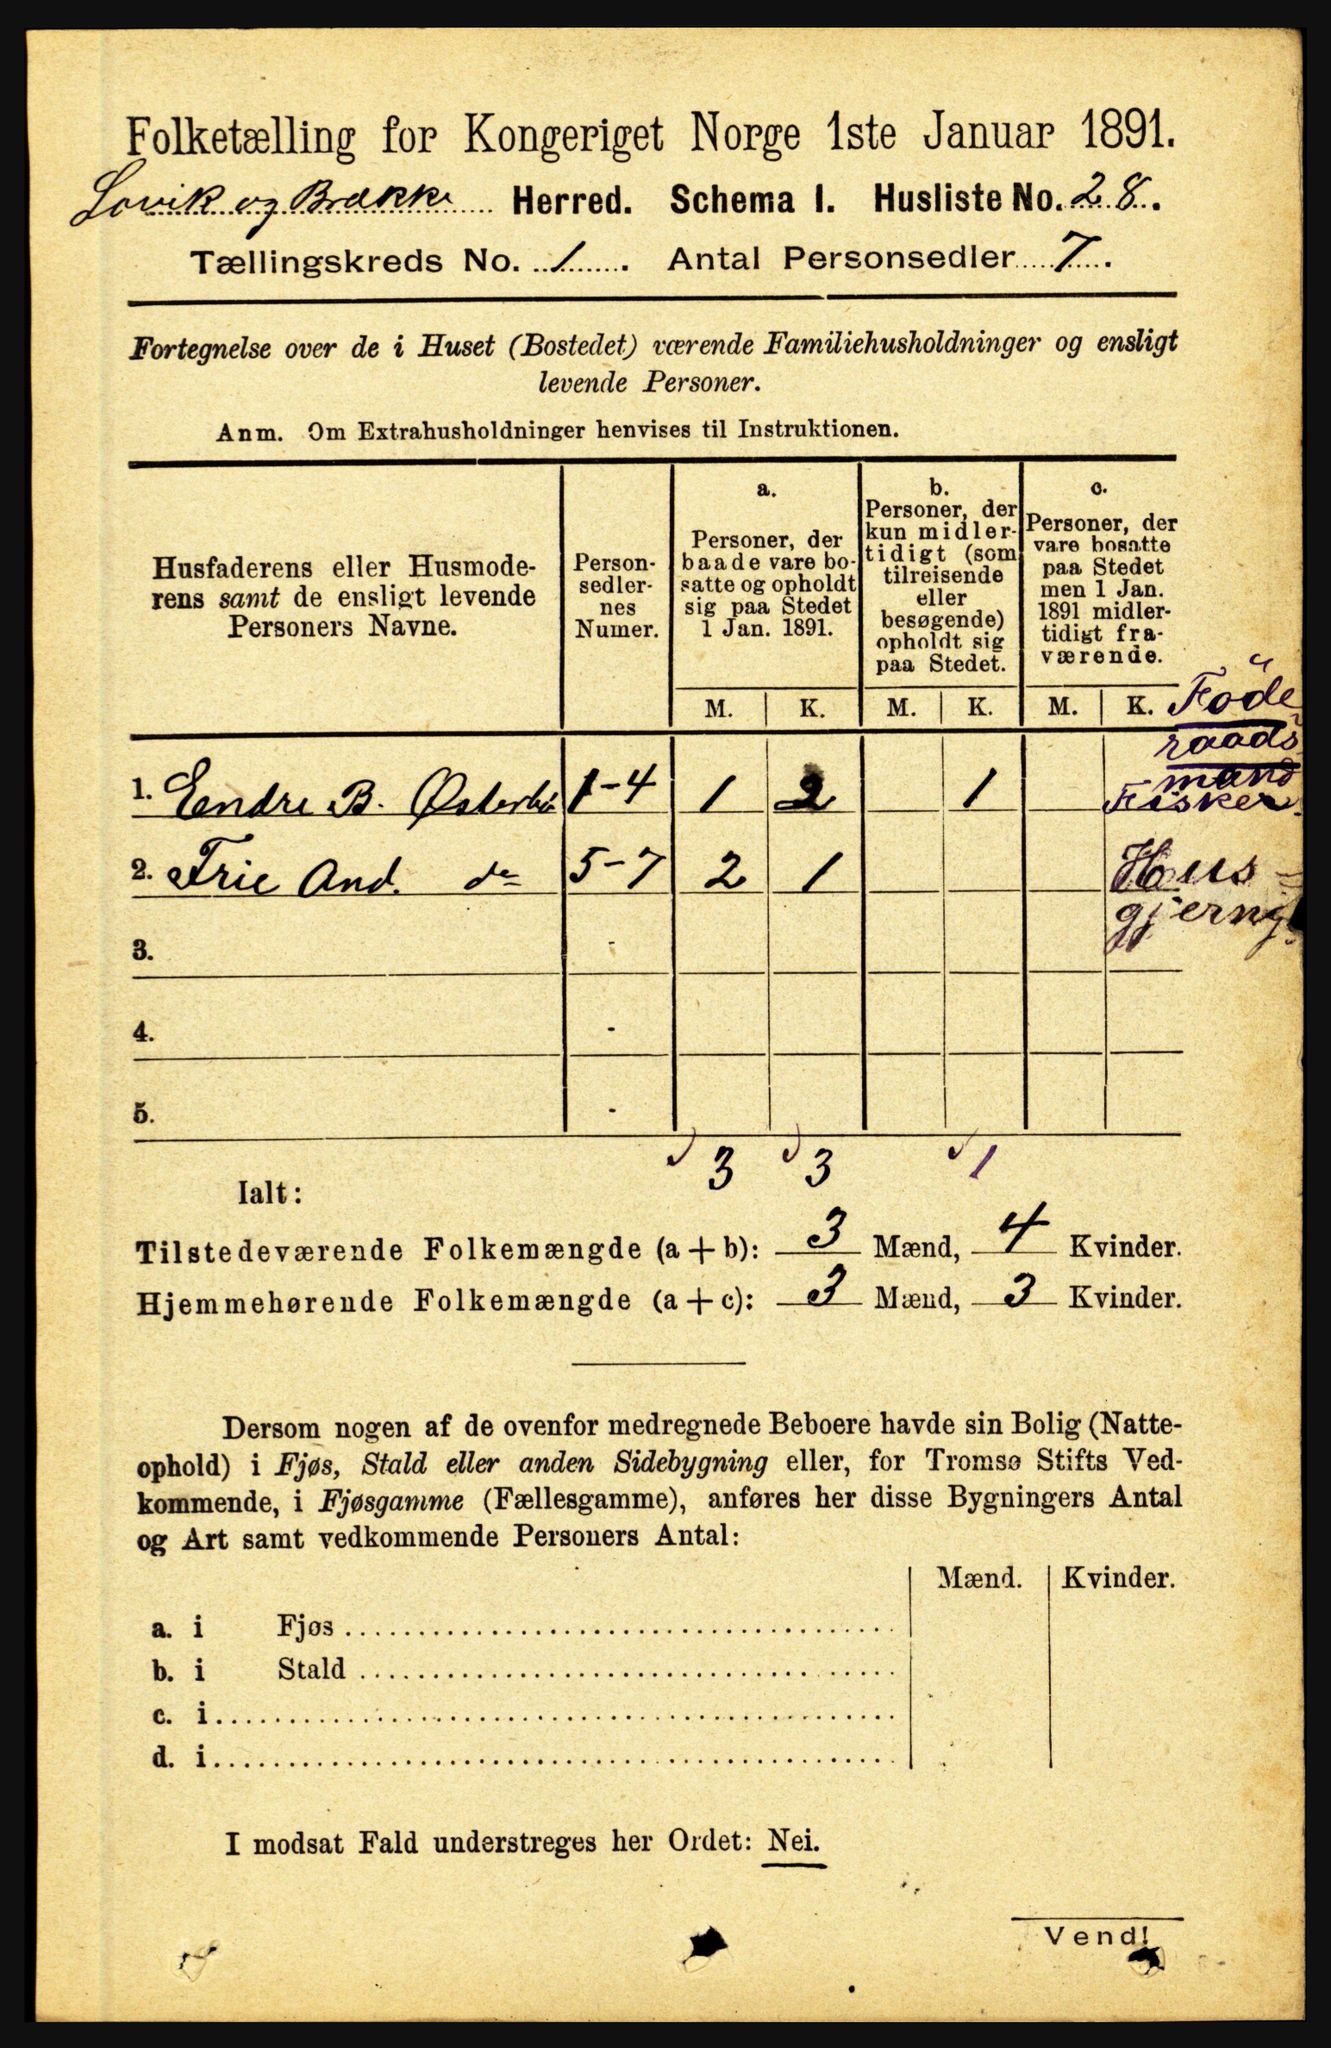 Folketælling for Kongeriget Norge 1ste Januar 1891.
Lavik og Brække Herred. Schema I. Husliste No. 28.
Tællingskreds No. 1. Antal Personsedler 7.
Fortegnelse over de i Huset (Bostedet) værende Familiehusholdninger og ensligt
levende Personer.
Anm. Om Extrahusholdninger henvises til Instruktionen.
Husfaderens eller Husmode-
rens samt de ensligt levende
Personers Navne.
Person-
sedler-
nes
Numer.
a.
Personer, der
baade vare bo-
satte og opholdt
sig paa Stedet
1 Jan. 1891.
b.
Personer, der
kun midler-
tidigt (som
tilreisende
eller
besøgende)
opholdt sig
paa Stedet.
c.
Personer, der
vare bosatte
paa Stedet
men 1 Jan.
1891 midler-
tidigt fra-
værende.
M. K. M. K. M. K.
Föde-
raads
mand
Fisker
1. Endre B. Østerbø 1-4 1 2 1
2. And. do 5-7 2 1
Hus-
gjerng.
3. -
4. -
5. -
3 3 1
Ialt:
Tilstedeværende Folkemængde (a + b): 3 Mænd, 4 Kvinder.
Hjemmehørende Folkemængde (a + c): 3 Mænd, 3 Kvinder.
Dersom nogen af de ovenfor medregnede Beboere havde sin Bolig (Natte-
ophold) i Fjøs, Stald eller anden Sidebygning eller, for Tromsø Stifts Ved-
kommende, i Fjøsgamme (Fællesgamme), anføres her disse Bygningers Antal
og Art samt vedkommende Personers Antal:
Mænd. Kvinder.
a. i Fjøs
b. i Stald
c. i
d. i
I modsat Fald understreges her Ordet: Nei.
Vend!